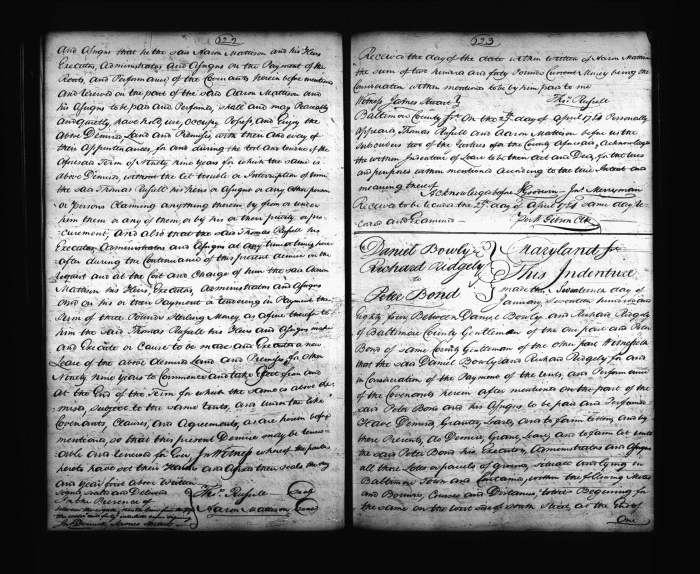 522
And Assigns that he the said Aaron Mattison and his Heirs
Executors, Administrators and Assigns on the Payment of the
Rents, and Performance of the Covenants herein before mentioned
and reserved on the part of the said Aaron Mattison and
his Assigns to be paid and Performed, shall and may Peaceably
and quietly have hold, use, occupy Possess and Enjoy the
above Demised Land and Premises, with their and every of
their Appurtenances, for and during the Term of the
Aforesaid Term of Ninety nine Years for which the same is
above Demised, without the Let trouble or Interruption of him
the said Thomas Russell his Heirs or Assigns or any other person
or Persons Claiming anything therein by from or under
him them or any of them, or by his or their privity or pro-
curement, and also that the said Thomas Russell his
Executors, Administrators and Assigns at any time or times here
after during the Continuance of this present demise on the
Request and at the Cost and Charge of him the said Aaron
Mattison his Heirs, Executors, Administrators and Assigns
and on his or their Payment or tendering in Payment the
Sum of three Pounds Sterling Money as a fine therefor to
him the said Thomas Russell his Heirs and Assigns make
and Execute or Cause to be made and Executed a new
Lease of the above demised Land and Premises for other
Ninety nine Years to Commence and take Effect from and
at the End of the Term for which the Same is above de-
mised, subject to the Same rents, and with the like
Covenants, Clauses, and Agreements, as are herein before
mentioned, so that this present Demise may be renew-
able and renewed for Ever. In Witness whereof the parties
hereto have set their Hands and Affixed their Seals the day
and Year first above Written
Signed Sealed and Delivered
In the Presence of
Thos. Russell Seal
Aaron Mattison Seal
James Stewart
523
Received the day of the date within written of Aaron Mattison
the sum of two hundred and forty Pounds Current Money being the
Consideration within mentioned to be by him paid to me
Witness James Stewart
Thos. Russell
Baltimore County Sct. On the 22d. day of April 1784 Personally
Appears, Thomas Russell and Aaron Mattison before us the
Subscribers two of the Justices for the County Aforesaid, Acknowledged
the within Indenture of Lease to be their Act and Deed, for the uses
and purposes within mentioned According to the true Intent and
meaning thereof
Acknowledged before Jno. Merryman
Received to be recorded the 22d. day of April 1784 same day re-
corded and Examined
Per Wm Gibson Clk
Daniel Bowly &
Richard Ridgely
to
Peter Bond
Maryland Sct
This Indenture
made this Seventeenth day of
January, Seventeen hundred and
eighty four Between Daniel Bowly and Richard Ridgely
of Baltimore County Gentlemen of the one part and Peter
Bond of same County Gentleman of the other part Witnesseth
that the said Daniel Bowly and Richard Ridgely for and
in Consideration of the Payment of the rents, and Performance
of the Covenants herein after mentioned on the part of the
said Peter Bond and his Assigns to be paid and Performed
Have Demised, Granted, Leased, and to farm letten, and by
these Presents, do Demise, Grant, Lease, and to farm let unto
the said Peter Bond his Executors, Administrators and Assigns
all those Lots or parcels of ground, situate and lying in
Baltimore Town and Contained within the following Metes
and Bounds, Courses and Distances, to wit Beginning for
the same on the West side of South Street, at the End of
One